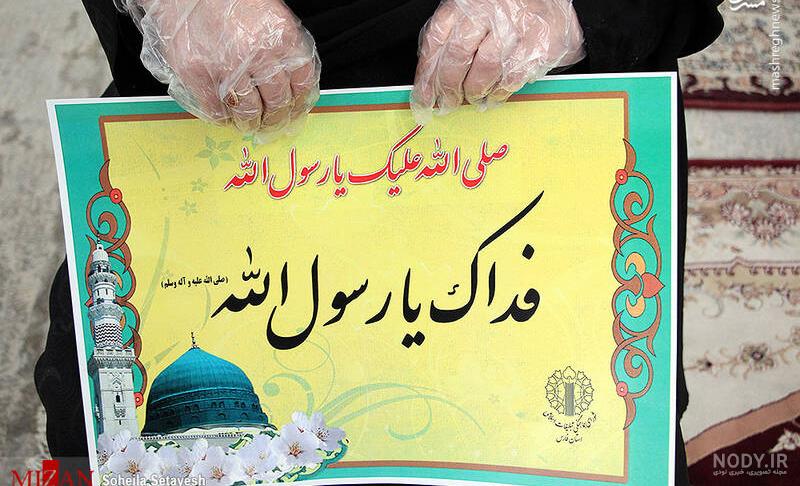 صلی الله علیک یا رسول الله
فداک یا رسول الله
(صلی الله علیه و آله وسلم)
شورای هماهنگی تبلیغات اسلامی
استان فارس
مشرق
mashreghnews
MIZAN
Soheila Setayesh
NODY.IR
مجله تصویری، خبری نودی